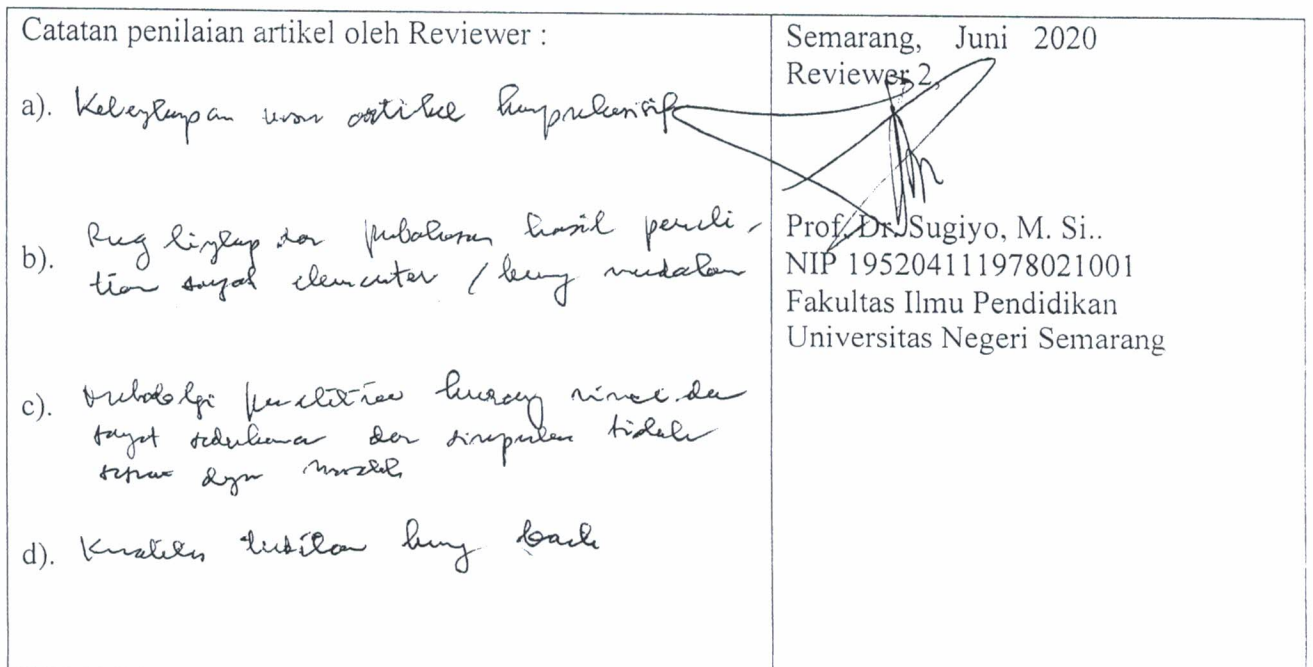 Catatan penilaian artikel oleh Reviewer :
a). Kelengkapan unsur artikel komprehensif
b). Ruang lingkup dan pembahasan hasil peneli-
tian sangat elementer / kurang mendalam
c). Metodologi penelitian kurang rinci dan
sangat sederhana dan simpulan tidak
sesuai dgn masalah
d). Kualitas terbitan kurang baik
Semarang, Juni 2020
Reviewer 2,
Prof. Dr. Sugiyo, M. Si..
NIP 195204111978021001
Fakultas Ilmu Pendidikan
Universitas Negeri Semarang